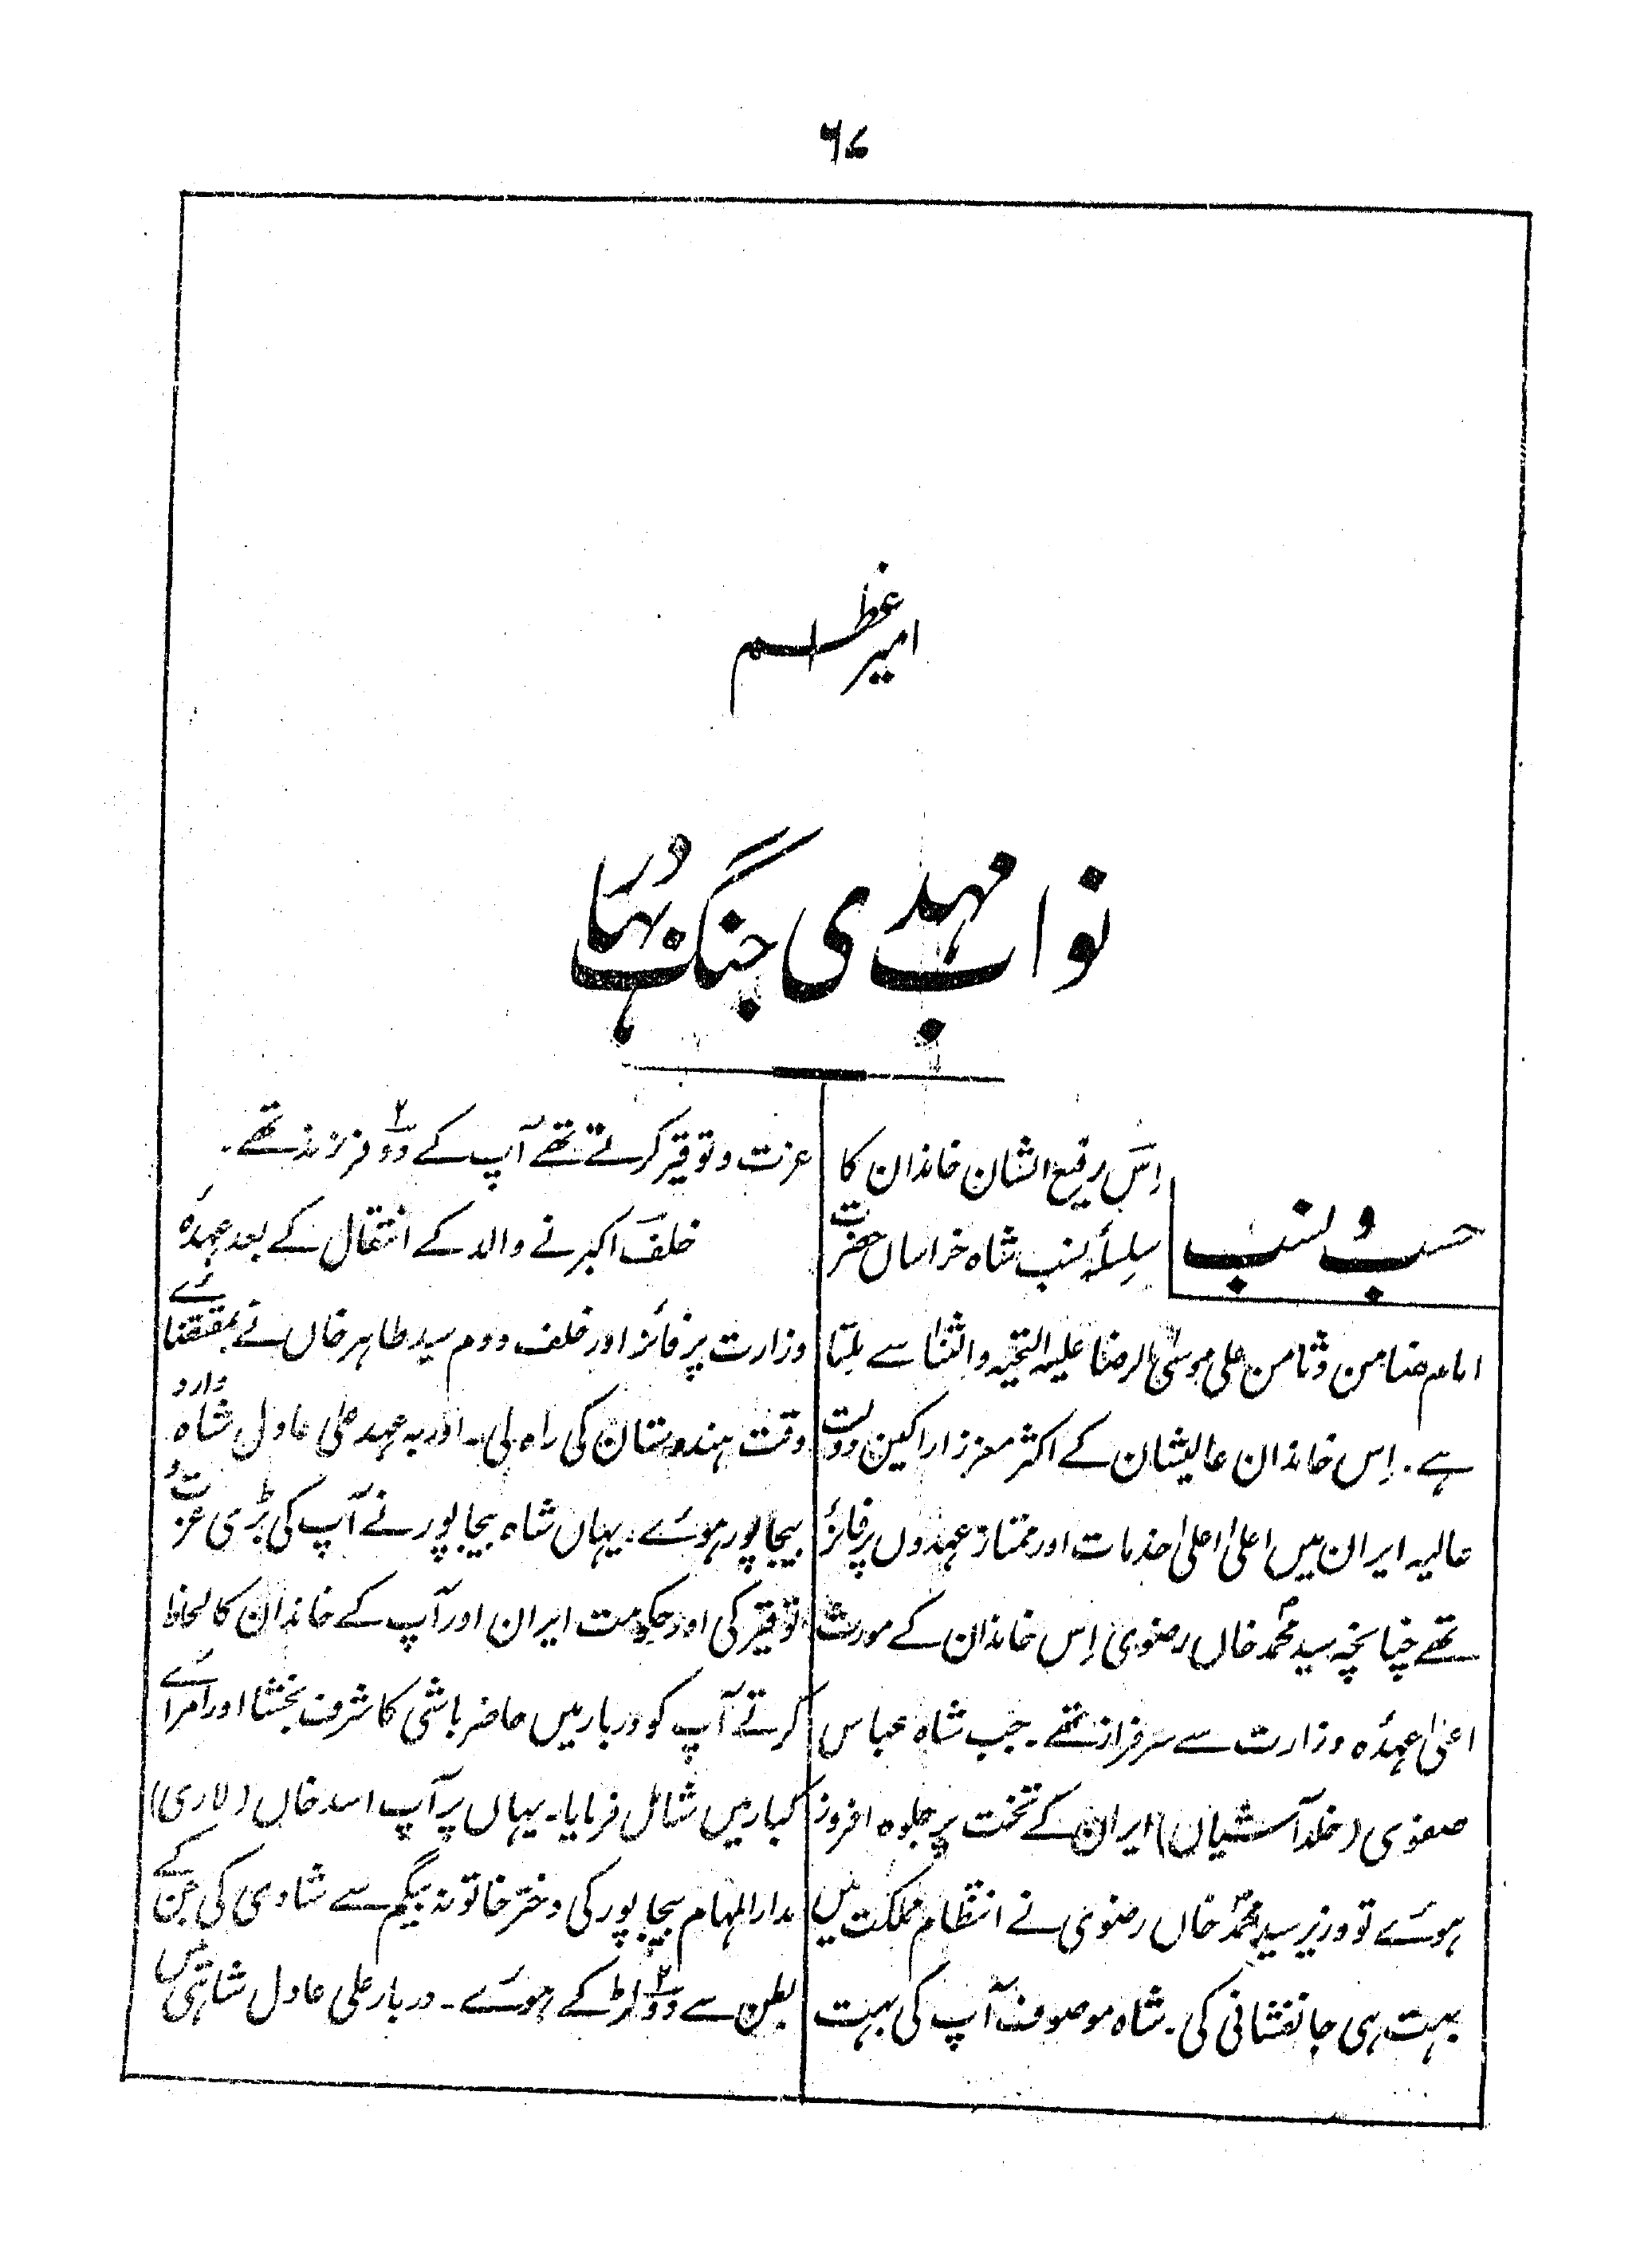 ۶۷
امیر اعظم
نواب مہدی جنگ بہادر
حسب و نسب
اِس رفیع الشان خاندان کا
سلسلۂ نسب شاہ خراساں حضرت
امام ضامن و ثامن علی موسیٰ الرضا علیہ التحیہ والثنا سے ملتا
ہے۔ اِس خاندان عالیشان کے اکثر معزز اراکین دولت
عالیہ ایران میں اعلیٰ اعلیٰ خدمات اور ممتاز عہدوں پر فائز
تھے چنانچہ سید محمد خاں رضوی اِس خاندان کے مورث
اعلیٰ عہدۂ وزارت سے سرفراز تھے۔ جب شاہ عباس
صفوی (خلد آشیاں) ایران کے تخت پر جلوہ افروز
ہوئے تو وزیر سید محمد خاں رضوی نے انتظام مملکت میں
بہت ہی جانفشانی کی۔ شاہ موصوف آپ کی بہت
عزت و توقیر کرتے تھے آپ کے دو۲ فرزند تھے۔
خلف اکبر نے والد کے انتقال کے بعد عہدۂ
وزارت پر فائز اور خلف دوم سید طاہر خاں نے بمقتضائے
وقت ہندوستان کی راہ لی۔ اور بہ عہد علی عادل شاہ وارد
بیجاپور ہوئے۔ یہاں شاہ بیجاپور نے آپ کی بڑی عزت و
توقیر کی اور حکومت ایران اور آپ کے خاندان کا لحاظ
کرتے آپ کو دربار میں حاضر باشی کا شرف بخشا اور امرائے
کبار میں شامل فرمایا۔ یہاں پر آپ اسد خاں (لاری)
مدارالمہام بیجاپور کی دختر خاتونہ بیگم سے شادی کی جن کے
بطن سے دو۲ لڑکے ہوئے۔ دربار علی عادل شاہی میں